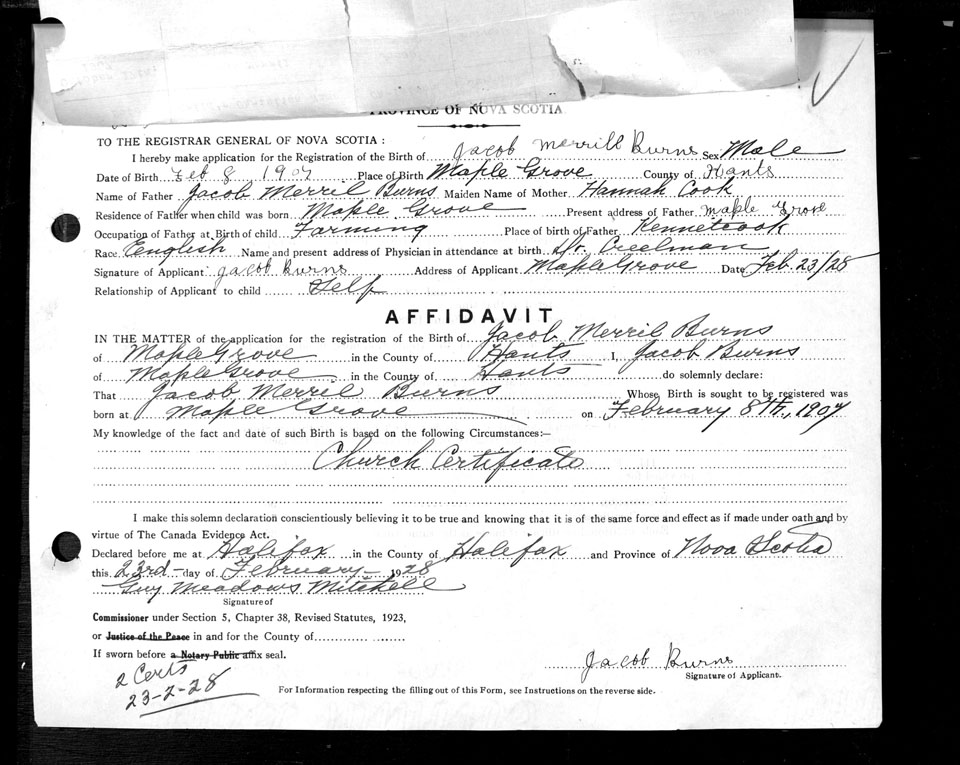 PROVINCE OF NOVA SCOTIA
TO THE REGISTRAR GENERAL OF NOVA SCOTIA :
I hereby make application for the Registration of the Birth of Jacob Merrill Burns Sex Male
Date of Birth Feb 8 1907 Place of Birth Maple Grove County of Hants
Name of Father Jacob Merril Burns Maiden Name of Mother Hannah Cook
Residence of Father when child was born Maple Grove Present address of Father Maple Grove
Occupation of Father at Birth of child Farming Place of birth of Father Kennetcook
Race English Name and present address of Physician in attendance at birth Dr. Creelman
Signature of Applicant: Jacob Burns Address of Applicant Maple Grove Date Feb. 23/28
Relationship of Applicant to child Self
AFFIDAVIT
IN THE MATTER of the application for the registration of the Birth of Jacob Merril Burns
of Maple Grove in the County of Hants I, Jacob Burns
of Maple Grove in the County of Hants do solemnly declare:
That Jacob Merril Burns Whose Birth is sought to be registered was
born at Maple Grove on February 8th, 1907
My knowledge of the fact and date of such Birth is based on the following Circumstances:—
Church Certificate
I make this solemn declaration conscientiously believing it to be true and knowing that it is of the same force and effect as if made under oath and by
virtue of The Canada Evidence Act.
Declared before me at Halifax in the County of Halifax and Province of Nova Scotia
this 23rd day of February 1928
Guy Meadows Mitchell
Signature of
Commissioner under Section 5, Chapter 38, Revised Statutes, 1923,
or Justice of the Peace in and for the County of
If sworn before a Notary Public affix seal.
Jacob Burns
Signature of Applicant.
2 Certs
23-2-28
For Information respecting the filling out of this Form, see Instructions on the reverse side.